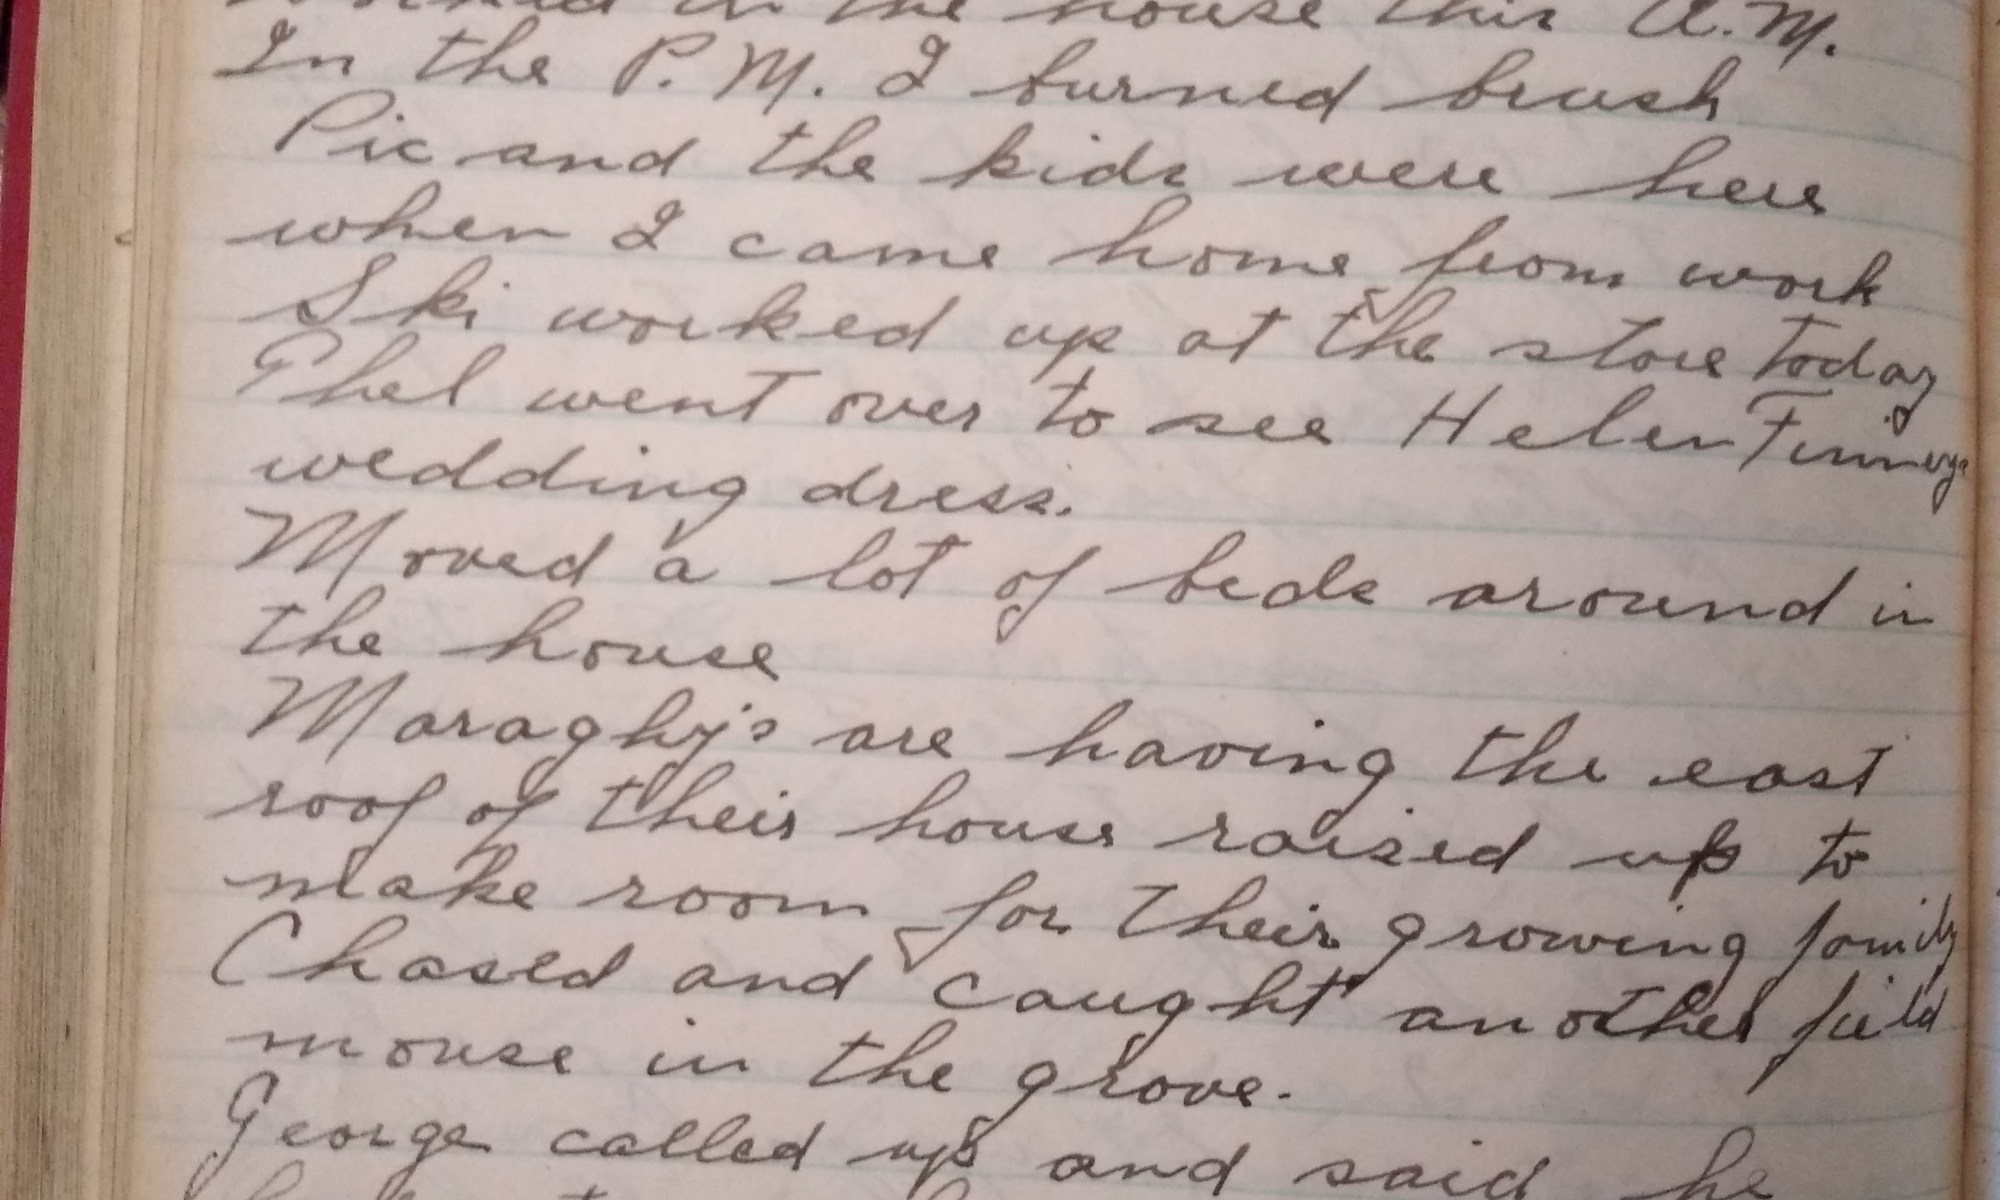 in the house this A.M.
In the P.M. I burned brush
Pic and the kids were here
when I came home from work
Ski worked up at the store today
Phel went over to see Helen
wedding dress.
Moved a lot of beds around in
the house
Maraghy's are having the east
roof of their house raised up to
make room for their growing family
Chased and caught another field
mouse in the grove.
George called up and said he